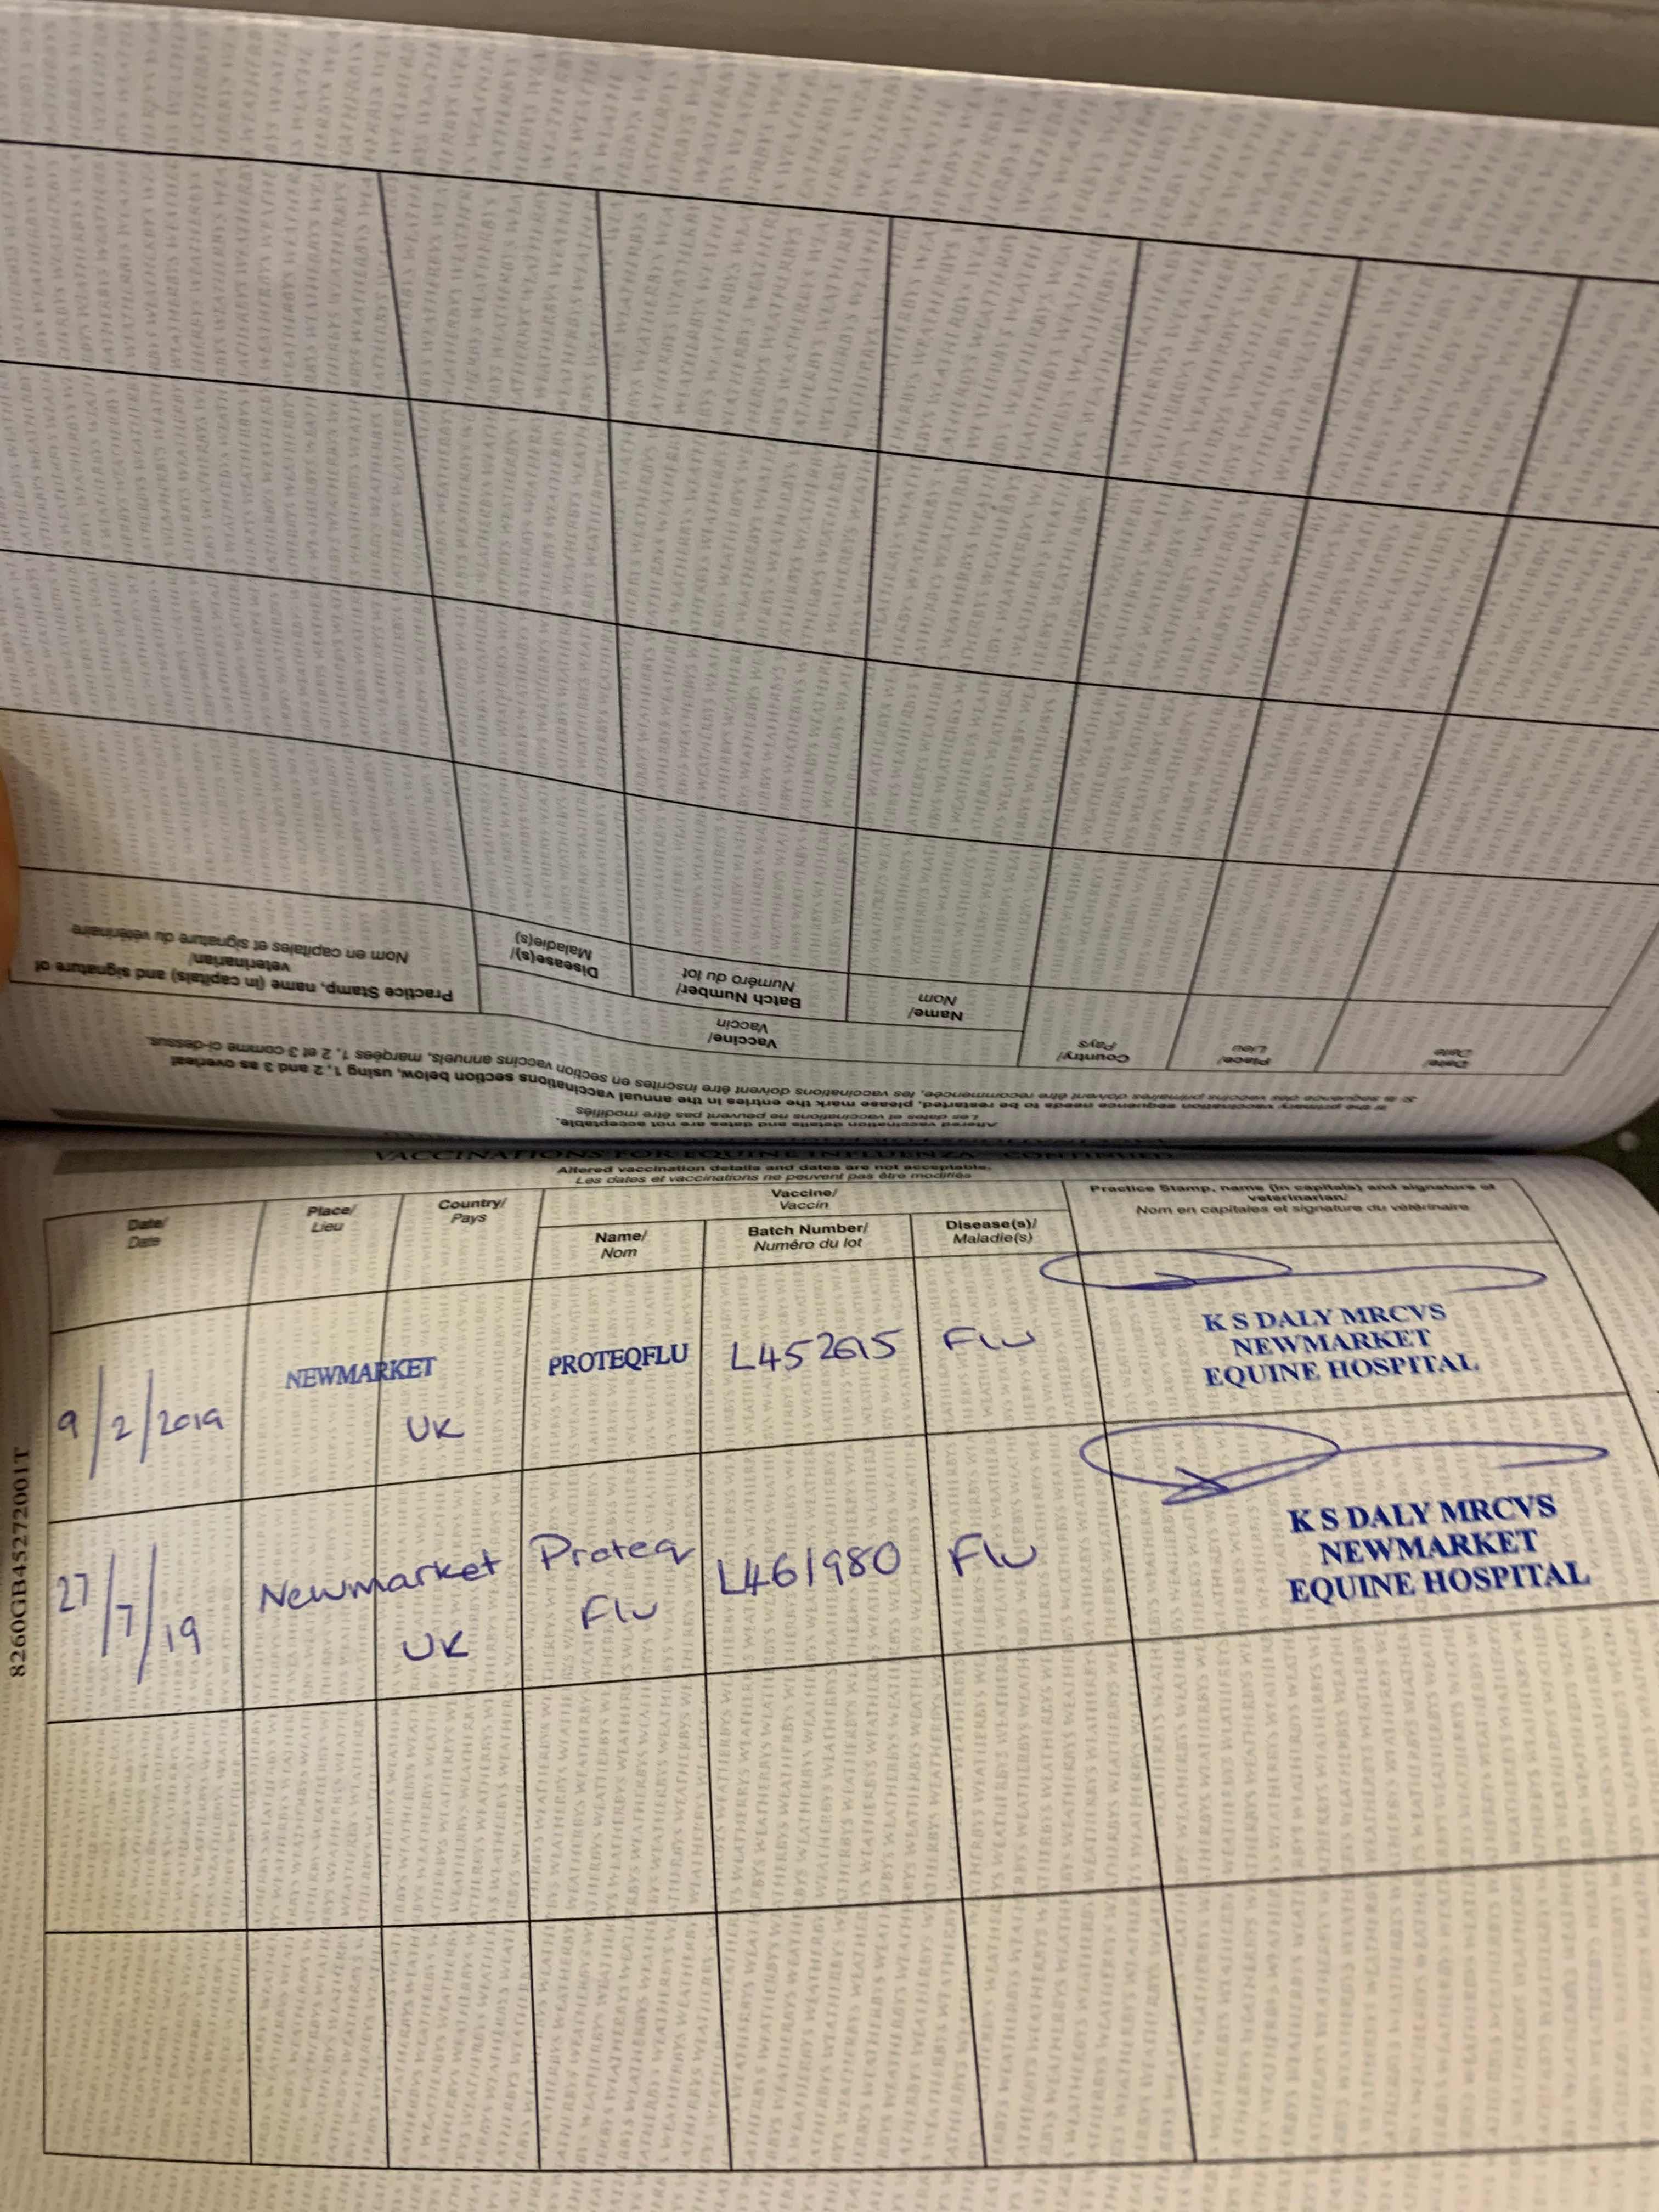 Altered vaccination details and dates are not acceptable.
Les dates et vaccinations ne peuvent pas être modifiés
If the primary vaccination sequence needs to be restarted, please mark the entries in the annual vaccinations section below, using 1, 2 and 3 as overleaf
Si la séquence des vaccins primaires doivent être recommencée, les vaccinations doivent être inscrites en section vaccins annuels, marqées 1, 2 et 3 comme ci-dessus.
Date/
Date
Place/
Lieu
Country/
Pays
Vaccine/
Vaccin
Name/
Nom
Batch Number/
Numéro du lot
Disease(s)/
Maladie(s)
Practice Stamp, name (in capitals) and signature of
veterinarian/
Nom en capitales et signature du vétérinaire
VACCINATIONS FOR EQUINE INFLUENZA - CONTINUED
Altered vaccination details and dates are not acceptable.
Les dates et vaccinations ne peuvent pas être modifiés
Date/
Date
Place/
Lieu
Country/
Pays
Vaccine/
Vaccin
Name/
Nom
Batch Number/
Numéro du lot
Disease(s)/
Maladie(s)
Practice Stamp, name (in capitals) and signature of
veterinarian/
Nom en capitales et signature du vétérinaire
9/2/2019
NEWMARKET
UK
PROTEQFLU
L452615
Flu
K S DALY MRCVS
NEWMARKET
EQUINE HOSPITAL
27/7/19
Newmarket
UK
Proteq
Flu
L461980
Flu
K S DALY MRCVS
NEWMARKET
EQUINE HOSPITAL
8260GB45272001T